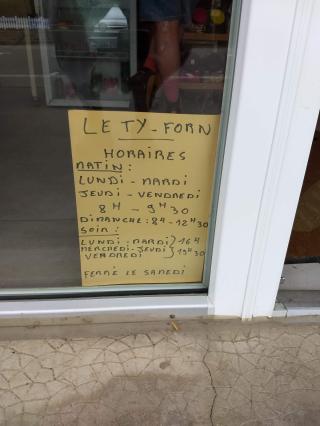 LE TY-FORN
HORAIRES
MATIN :
LUNDI - MARDI
JEUDI - VENDREDI
8H - 9H30
DIMANCHE : 8H - 12H30
SOIR :
LUNDI - MARDI } 16H
MERCREDI - JEUDI } 19H30
VENDREDI
FERMÉ LE SAMEDI